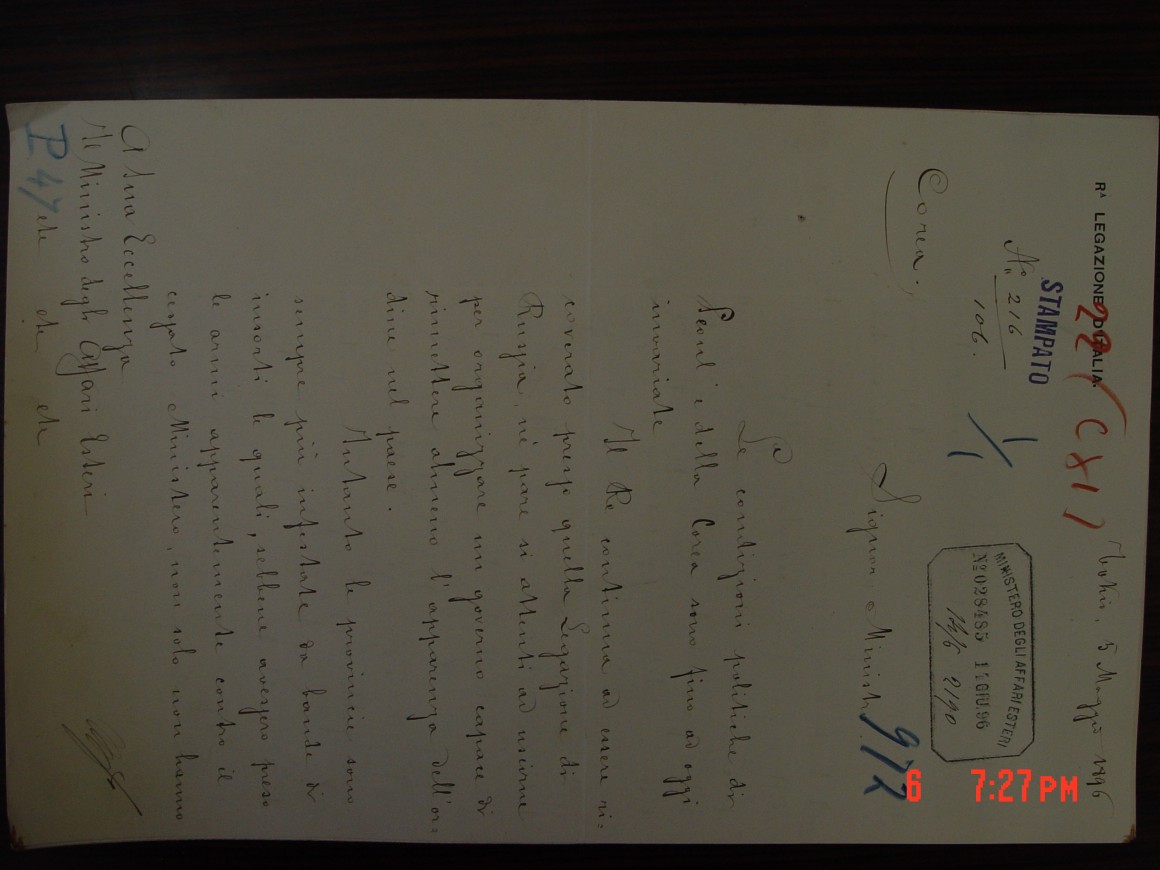 Rᴬ LEGAZIONE D'ITALIA
22 (CXI)
Tokio, 5 Maggio 1896
STAMPATO
N° 216
106.
1/1
MINISTERO DEGLI AFFARI ESTERI
N° 028485 14 GIU. 96
Corea.
Signor Ministro
972
Le condizioni politiche di
Seoul e della Corea sono fino ad oggi
invariate
Il Re continua ad essere ri=
coverato presso quella Legazione di
Russia, nè pare si attenti ad uscirne
per organizzare un governo capace di
rimettere almeno l'apparenza dell'or=
dine nel paese.
Intanto le provincie sono
sempre più infestate da bande di
insorti le quali, sebbene avessero preso
le armi apparentemente contro il
cessato Ministero, non solo non hanno
A Sua Eccellenza
Il Ministro degli Affari Esteri
etc etc etc
P 47
6 7:27 PM